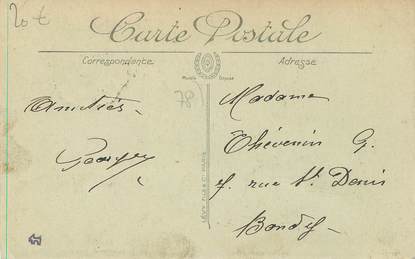 20 t
Carte Postale
Correspondance
Adresse
Modèle Déposé
78
Amitiés -
Georges
LÉVY FILS & Cie PARIS
Madame
Thévenin G.
7. rue St Denis
Bondy -